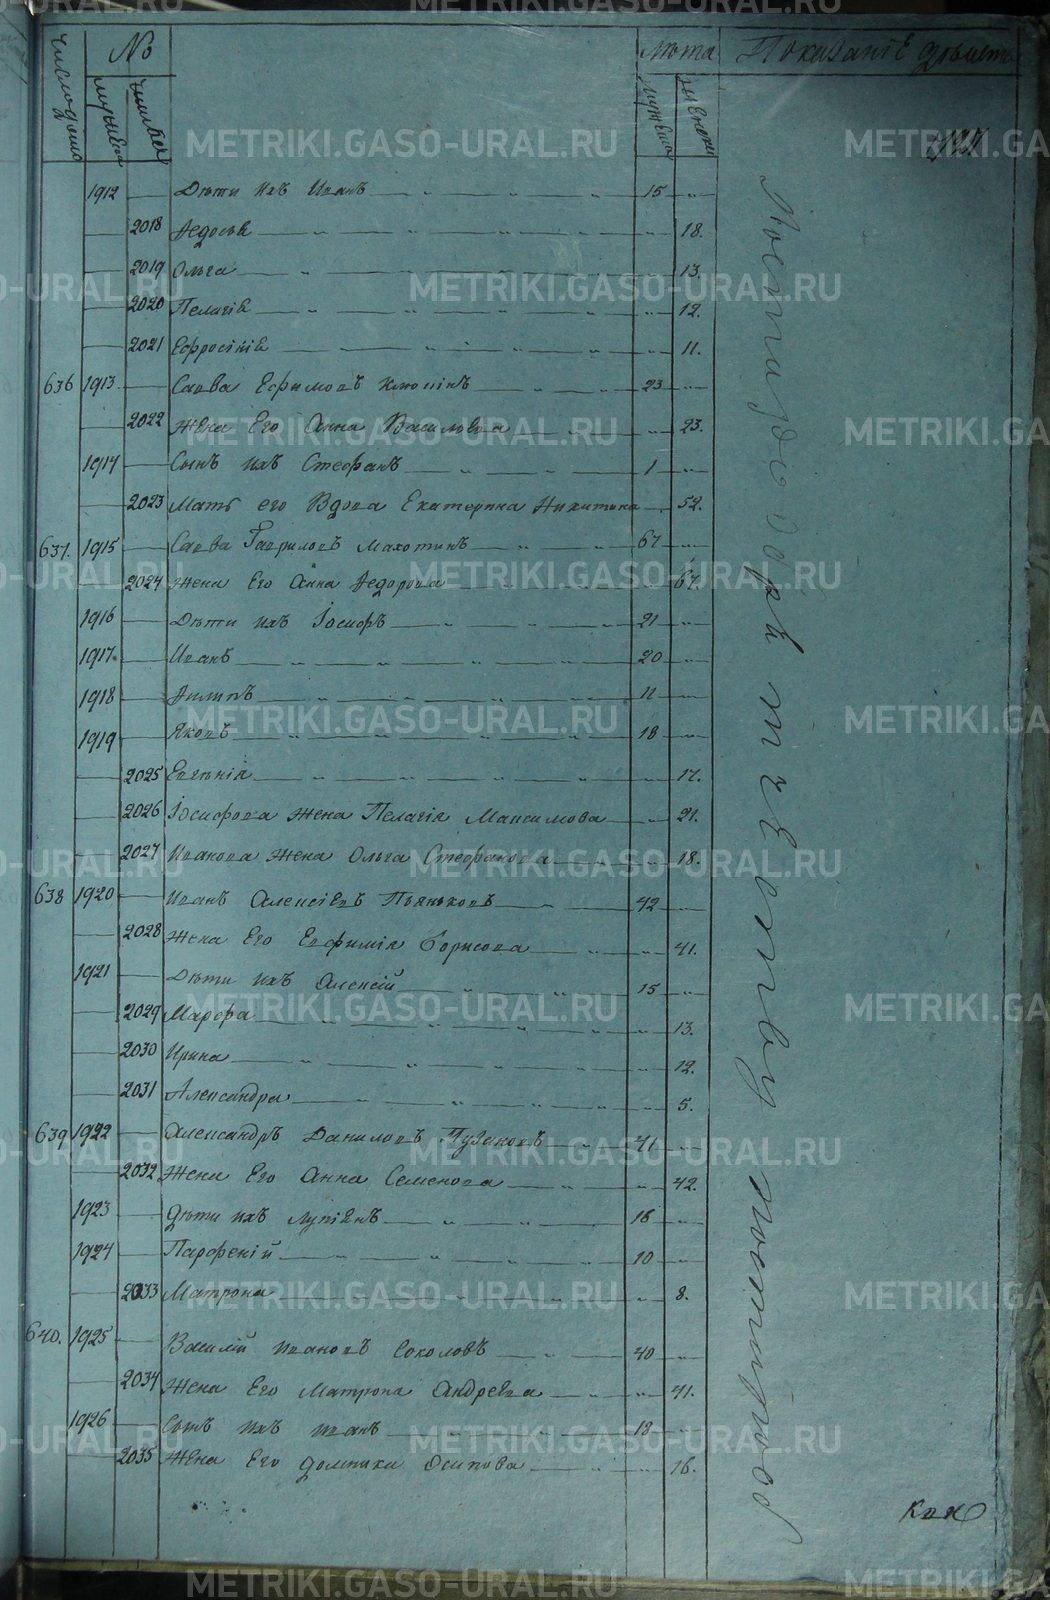 число домо № Лѣта Показанiе дѣист
мужеска женска мужеска женски
1912 — Дѣти ихъ Иванъ 15
2018 Ѳедосья 18.
2019 Ольга 13.
2020 Пелагiя 12.
2021 Ефросинiя 11.
636 1913 — Савва Ефимовъ 23
2022 Жена Его Анна Василова 23.
1914 — Сынъ ихъ Стефанъ 1
2023 Мать его Вдова Екатерина Никитина 52.
637. 1915 — Савва Гавриловъ Махотинъ 67
2024 Жена Его Анна Ѳедорова 67.
1916 — Дѣти ихъ Iосифъ 21
1917. — Иванъ 20
1918 — Филипъ 11
1919 — Яковъ 18
2025 Евгѣнiя 17.
2026 Iосифова жена Пелагiя Максимова 21.
2027 Иванова жена Ольга Стефанова 18.
638 1920 — Иванъ Алексiевъ Пьянковъ 42
2028 Жена Его Евфимiя Борисова 41.
1921 — Дѣти ихъ Алексiй 15
2029 Марфа 13.
2030 Ирина 12.
2031 Александра 5.
639 1922 — Александръ Даниловъ Пузановъ 41
2032 Жена Его Анна Семенова 42.
1923 — Дѣти ихъ Лупiянъ 18
1924 — Парфенiй 10
2033 Матрона 8.
640. 1925 — Василiй Ивановъ Соколовъ 40
2034 Жена Его Матрона Андреева 41.
1926 — Сынъ ихъ Иванъ 18
2035 Жена Его Домники Осипова 16.
METRIKI.GASO-URAL.RU